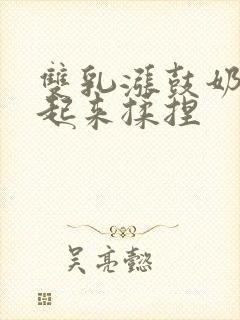 雙乳漲鼓奶
起来揉捏
吴亮懿